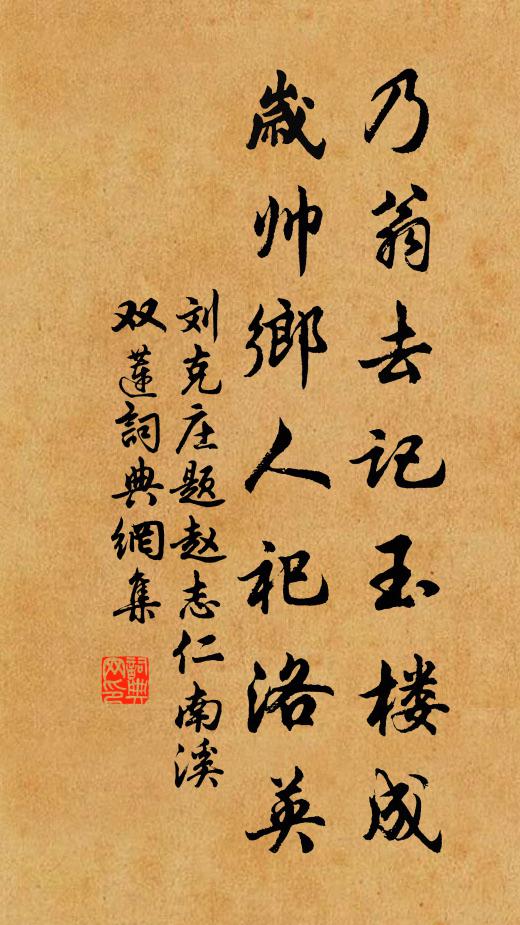 乃翁去记玉楼成
岁帅鄉人祀洛英
刘克庄题赵志仁南溪
双莲詞典網集
詞典网印